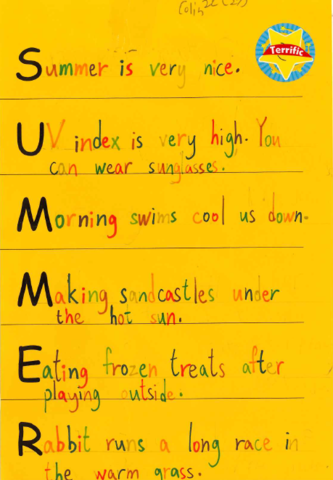 Terrific
Summer is very nice.
UV index is very high. You
can wear sunglasses.
Morning swims cool us down.
Making sandcastles under
the hot sun.
Eating frozen treats after
playing outside.
Rabbit runs a long race in
the warm grass.